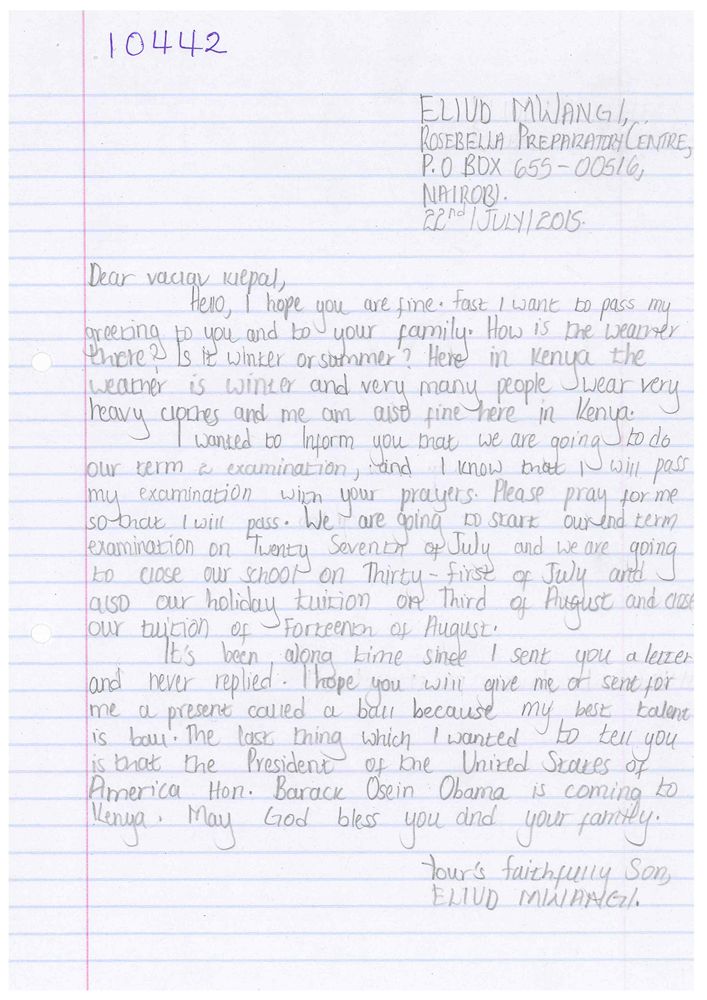 10442
ELIUD MWANGI,
ROSEBELLA PREPARATORY CENTRE,
P.O BOX 655-00516,
NAIROBI.
22nd/JULY/2015.
Dear vaclav kiepal,
Hello, I hope you are fine. fast I want to pass my
greeting to you and to your family. How is the weather
there? Is it winter or summer? Here in Kenya the
weather is winter and very many people wear very
heavy clothes and me am also fine here in Kenya.
I wanted to Inform you that we are going to do
our term 2 examination, and I know that I will pass
my examination with your prayers. Please pray for me
so that I will pass. We are going to start our end term
examination on Twenty Seventh of July and we are going
to close our school on Thirty-first of July and
also our holiday tuition on Third of August and close
our tuition of Forteenth of August.
It's been along time since I sent you a letter
and never replied. I hope you will give me or sent for
me a present called a ball because my best talent
is ball. The last thing which I wanted to tell you
is that the President of the United States of
America Hon. Barack Osein Obama is coming to
Kenya. May God bless you and your family.
Your's faithfully Son,
ELIUD MWANGI.